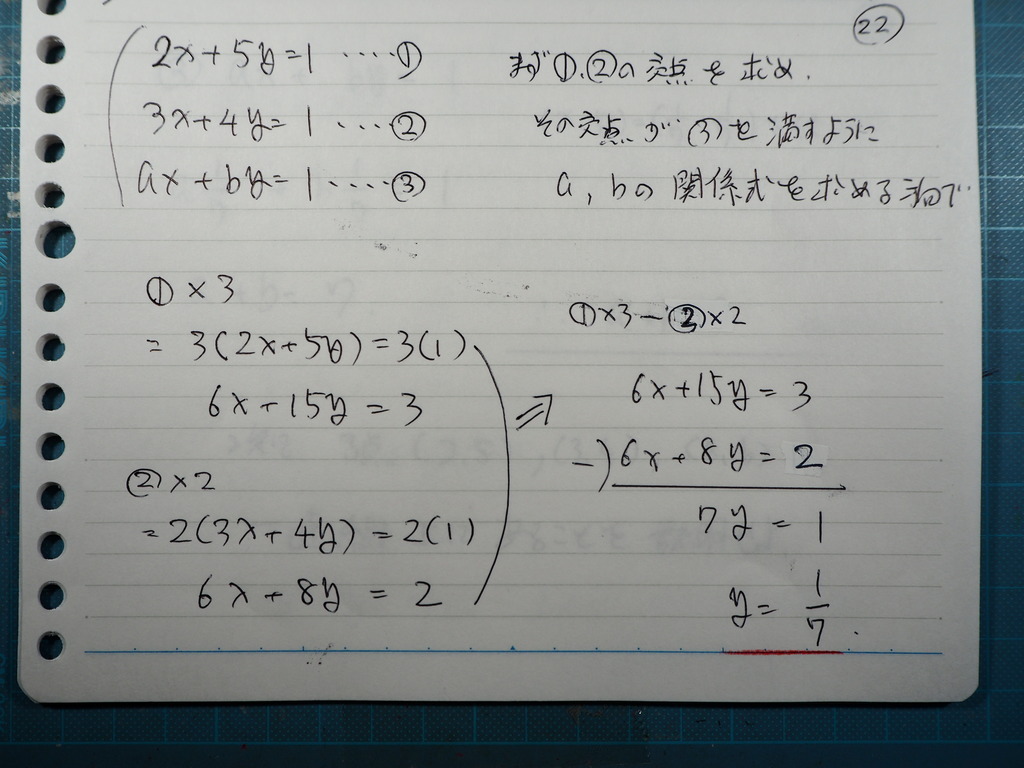 22
2x+5y=1 ‥‥①
3x+4y=1 ‥‥②
ax+by=1 ‥‥③
まず①、②の交点を求め、
その交点が③を満すように
a, bの関係式を求める
①×3
= 3(2x+5y)=3(1)
6x+15y=3
②×2
=2(3x+4y)=2(1)
6x+8y=2
⇒
①×3-②×2
6x+15y=3
-)6x+8y=2
7y=1
y=1/7.